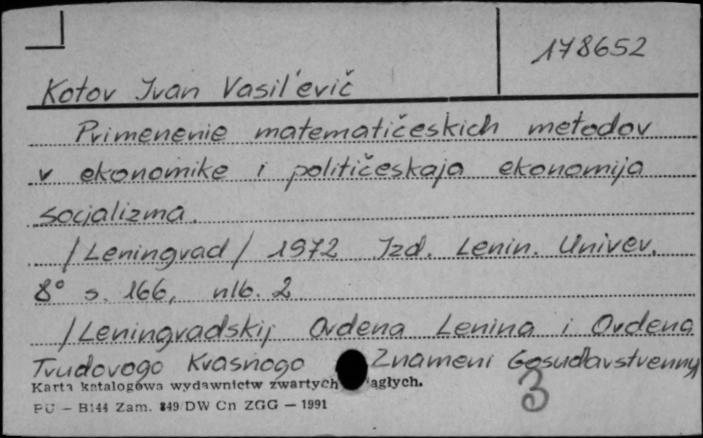 178652
Kotov Ivan Vasil'evič
Primenenie matematičeskich metodov
v ekonomike i političeskaja ekonomija
socjalizma.
/Leningrad/ 1972 Izd. Lenin. Univer.
8° s. 166, nlb. 2
/Leningradskij Ordena Lenina i Ordena
Trudovogo Krasnogo Znameni Gosudarstvennyj
3
Karta katalogowa wydawnictw zwartych ciągłych.
PU – B144 Zam. 849/DW Cn ZGG – 1991